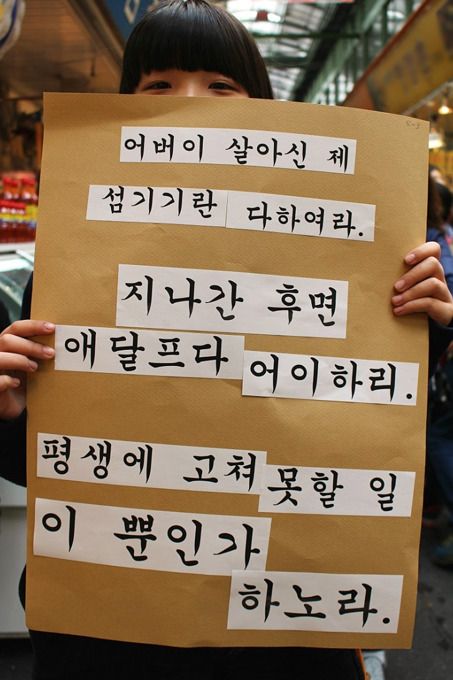 어버이 살아신 제
섬기기란 다하여라.
지나간 후면
애달프다 어이하리.
평생에 고쳐 못할 일
이 뿐인가
하노라.